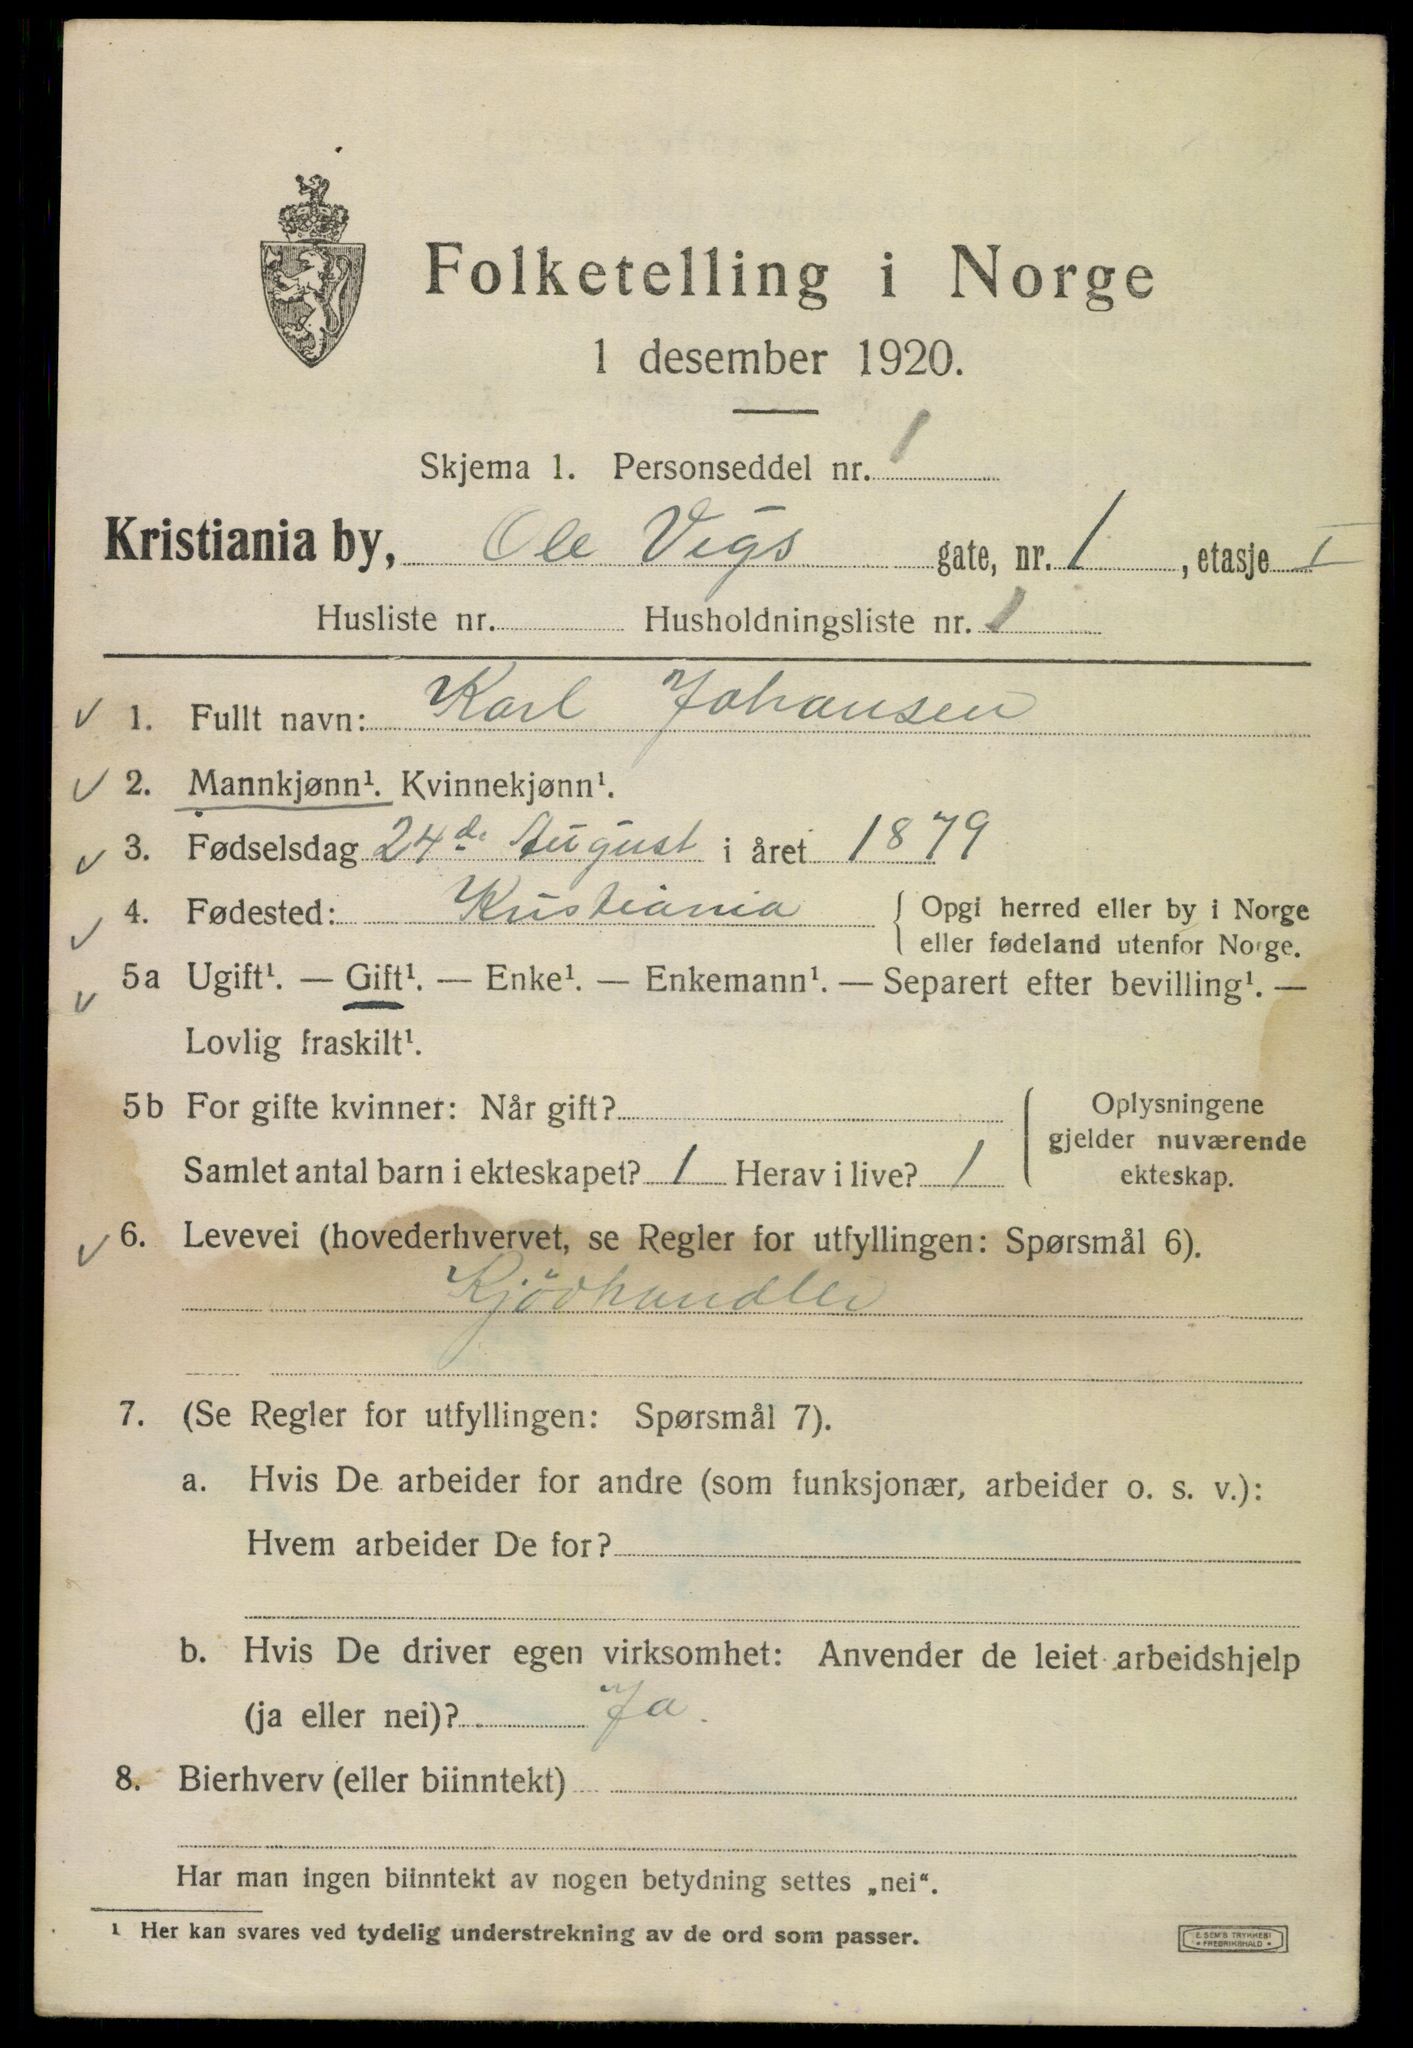 Folketelling i Norge
1 desember 1920.
Skjema 1. Personseddel nr. 1
Kristiania by, Ole Vigs gate, nr. 1, etasje I
Husliste nr. Husholdningsliste nr. 1
1. Fullt navn: Karl Johansen
2. Mannkjønn¹. Kvinnekjønn¹.
3. Fødselsdag 24de August i året 1879
4. Fødested: Kristiania { Opgi herred eller by i Norge
eller fødeland utenfor Norge.
5a Ugift¹. — Gift¹. — Enke¹. — Enkemann¹. — Separert efter bevilling¹. —
Lovlig fraskilt¹.
5b For gifte kvinner: Når gift? { Oplysningene
gjelder nuværende
Samlet antal barn i ekteskapet? 1 Herav i live? 1 ekteskap.
6. Levevei (hovederhvervet, se Regler for utfyllingen: Spørsmål 6).
Kjödhandler
7. (Se Regler for utfyllingen: Spørsmål 7).
a. Hvis De arbeider for andre (som funksjonær, arbeider o. s. v.):
Hvem arbeider De for?
b. Hvis De driver egen virksomhet: Anvender de leiet arbeidshjelp
(ja eller nei)? Ja.
8. Bierhverv (eller biinntekt)
Har man ingen biinntekt av nogen betydning settes „nei“.
¹ Her kan svares ved tydelig understrekning av de ord som passer.
E. SEM'S TRYKKERI
• FREDRIKSHALD •